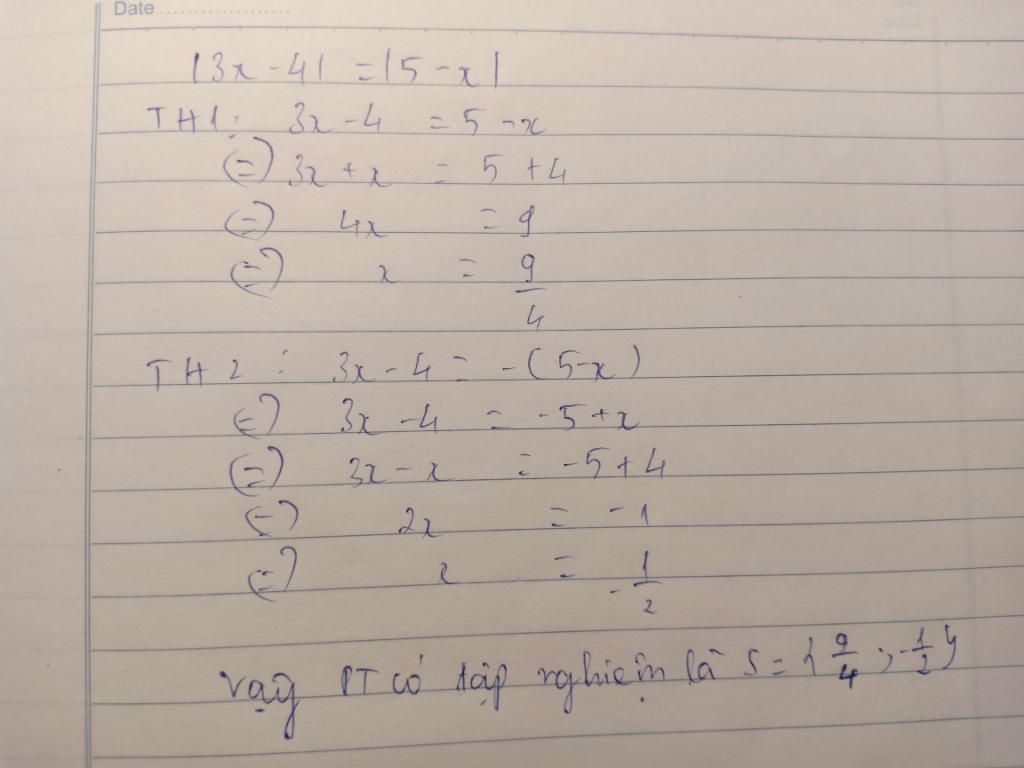 Date ....................
|3x - 4| = |5 - x|
TH1: 3x - 4 = 5 - x
(=) 3x + x = 5 + 4
(=) 4x = 9
(=) x = 9/4
TH2: 3x - 4 = -(5 - x)
(=) 3x - 4 = -5 + x
(=) 3x - x = -5 + 4
(=) 2x = -1
(=) x = -1/2
Vậy PT có tập nghiệm là S = {9/4; -1/2}